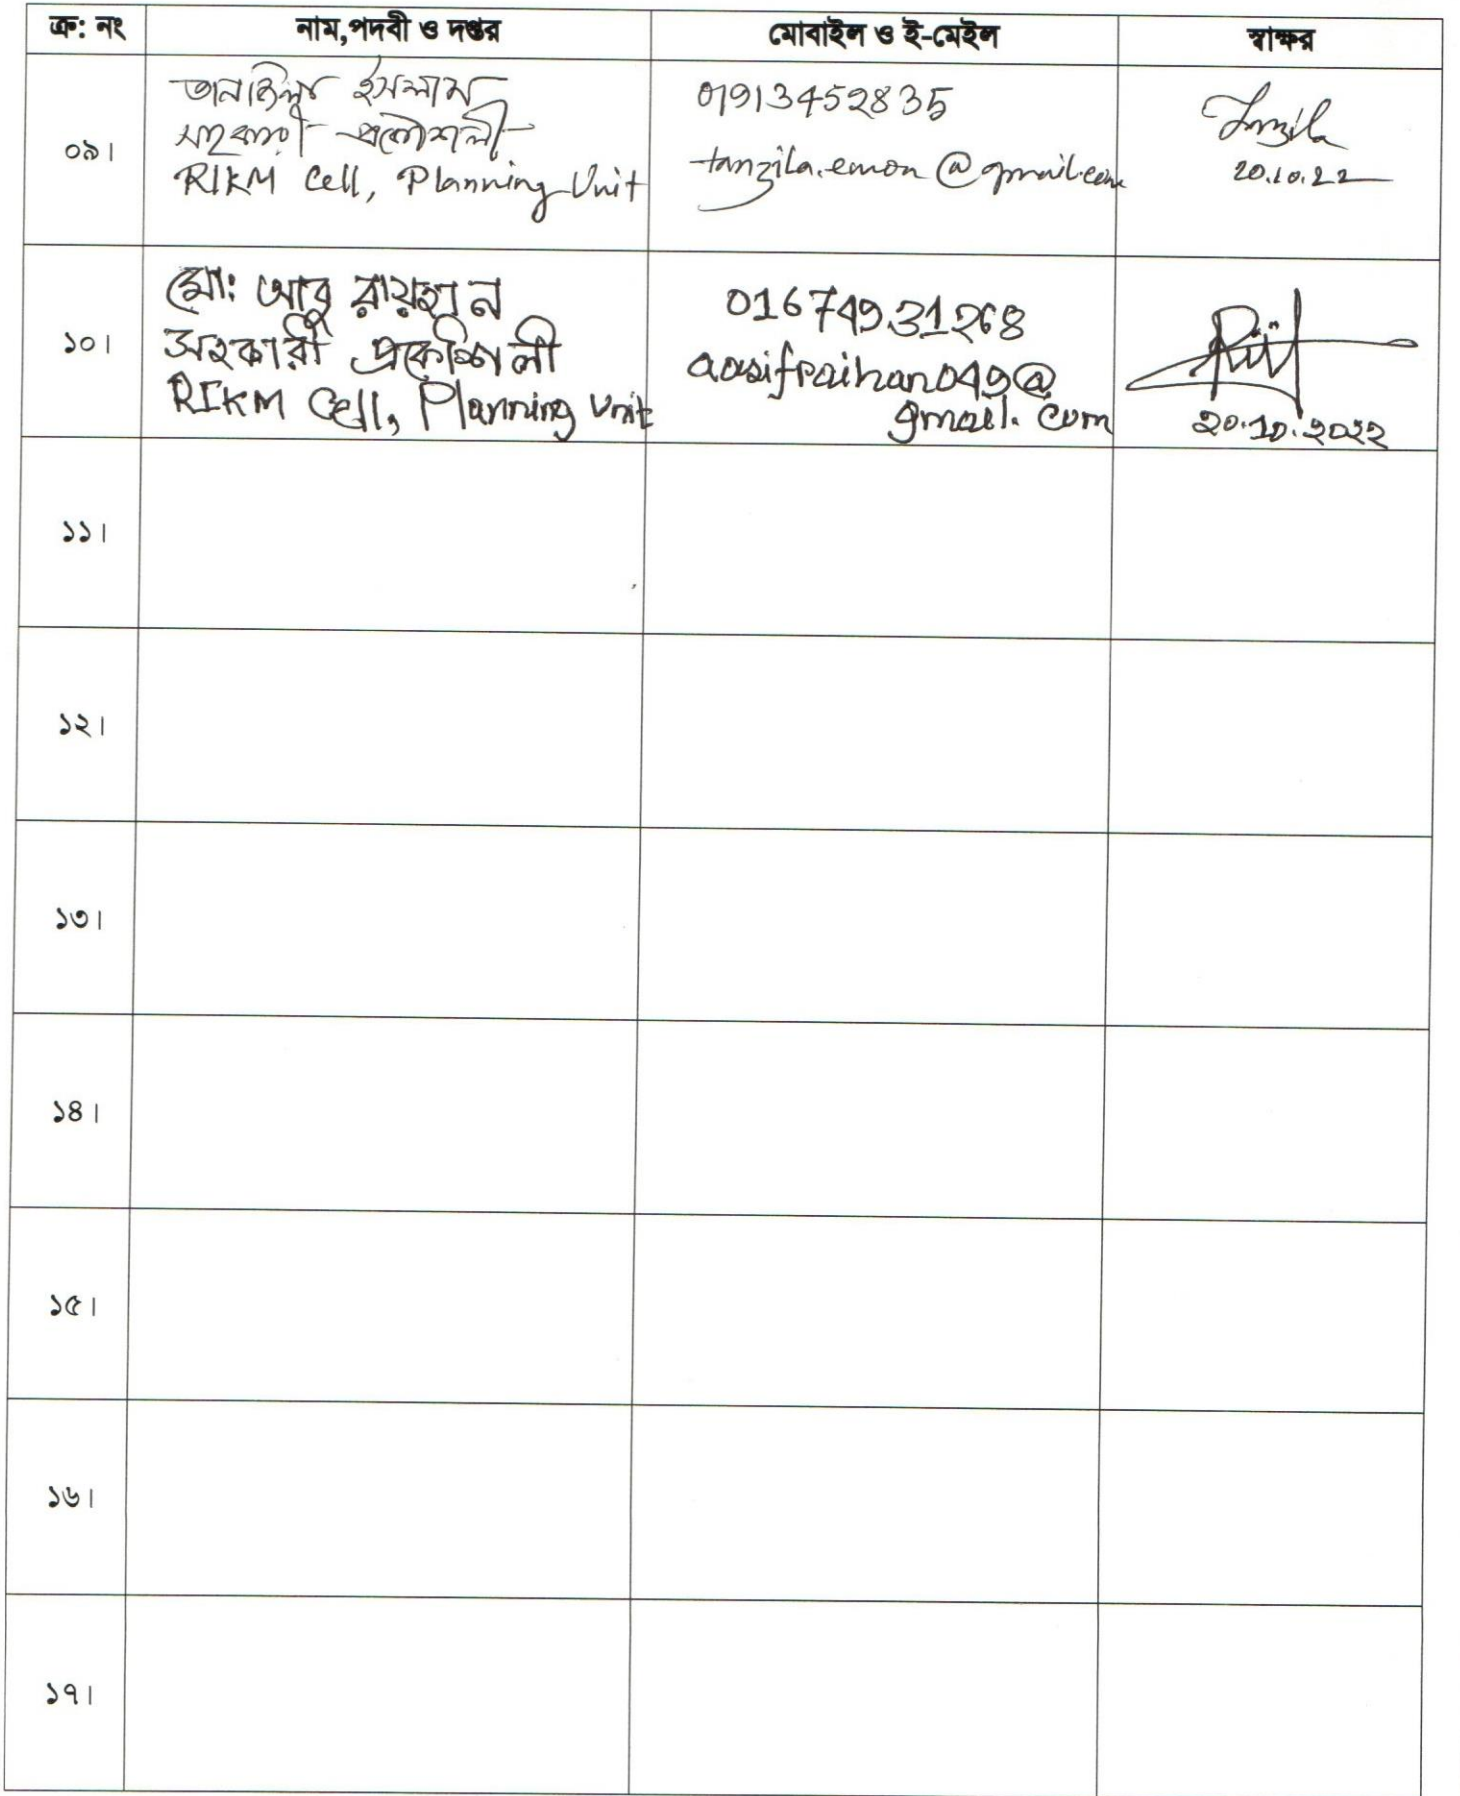 ক্র: নং নাম,পদবী ও দপ্তর মোবাইল ও ই-মেইল স্বাক্ষর
তানজিলা ইসলাম
সহকারী প্রকৌশলী
RIKM Cell, Planning Unit
01913452835
tanzila.emon@gmail.com
Tanzila
20.10.22
০৯।
মো: আবু রায়হান
সহকারী প্রকৌশলী
RIKM Cell, Planning Unit
01674931268
aasifraihan049@
gmail.com
20.10.2022
১০।
১১।
১২।
১৩।
১৪।
১৫।
১৬।
১৭।